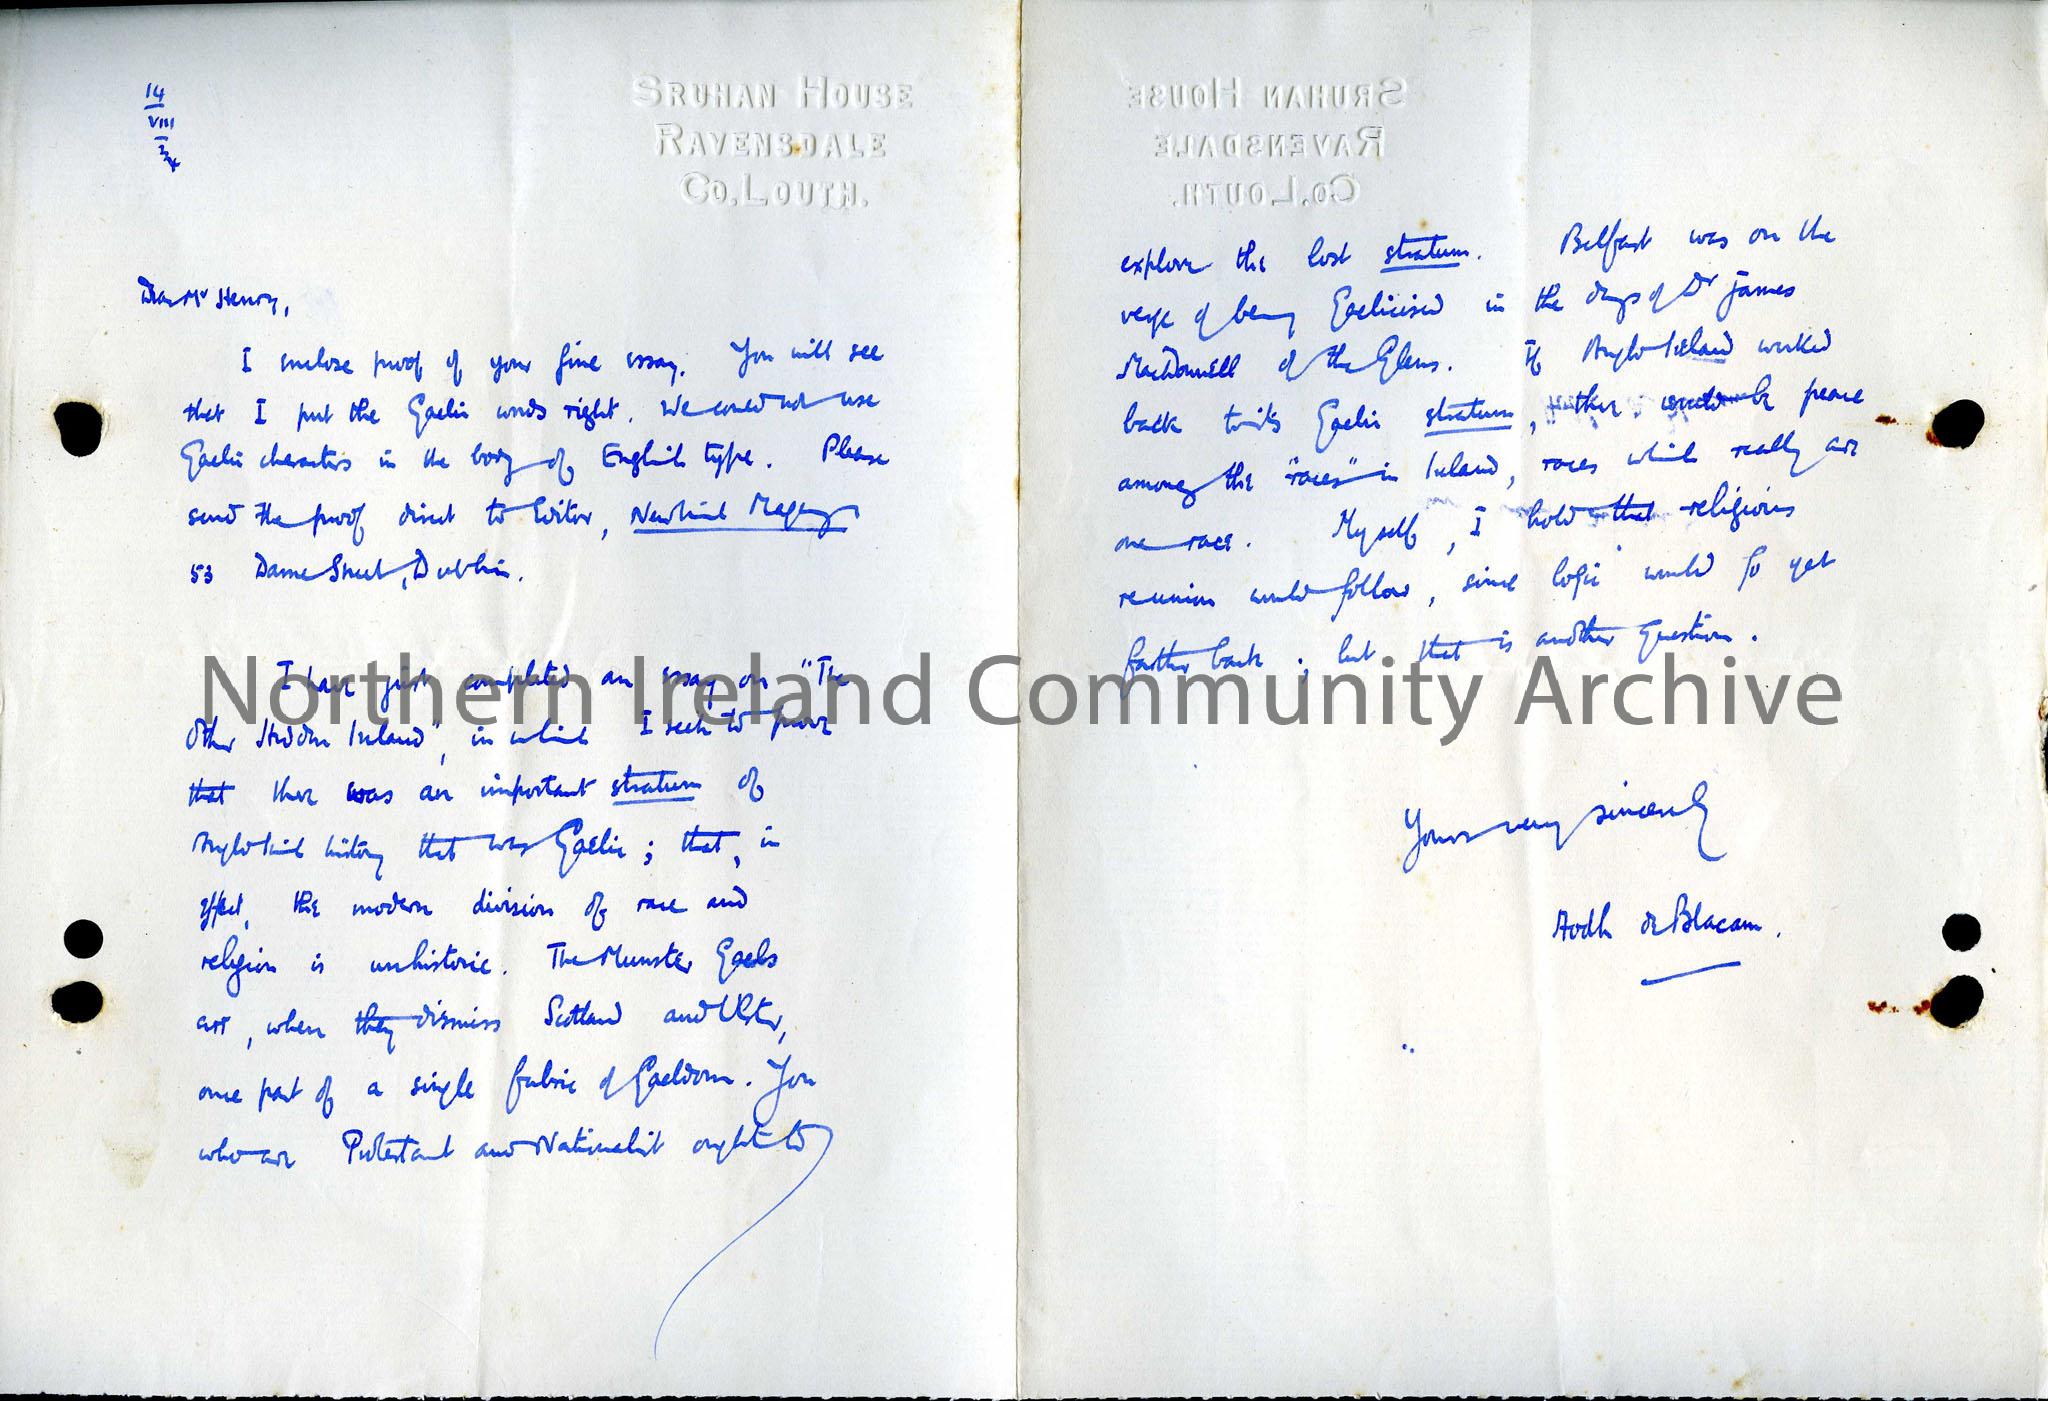 14
VIII
SRUHAN HOUSE
RAVENSDALE
CO. LOUTH.
Dear Mr Henry,
I enclose proof of your fine essay. You will see
that I put the Gaelic words right. We could not use
Gaelic characters in the body of English type. Please
send the proof direct to Editor, New Irish Magazine
53 Dame Street, Dublin.
I have just completed an essay on "The
Other Hidden Ireland", in which I seek to prove
that there was an important stratum of
Anglo Irish history that was Gaelic; that, in
effect, the modern division of race and
religion is unhistoric. The Munster Gaels
are, when they dismiss Scotland and Ulster,
one part of a single fabric of Gaeldom. You
who are Protestant and Nationalist ought to
explore the lost stratum. Belfast was on the
verge of being Gaelicised in the days of Dr James
MacDonnell of the Glens. If Anglo-Ireland worked
back to its Gaelic stratum, there would be peace
among the "races" in Ireland, races which really are
one race. Myself, I hold that religious
reunion would follow, since logic would go yet
farther back; but that is another question.
Yours very sincerely
Aodh de Blacam.
Northern Ireland Community Archive